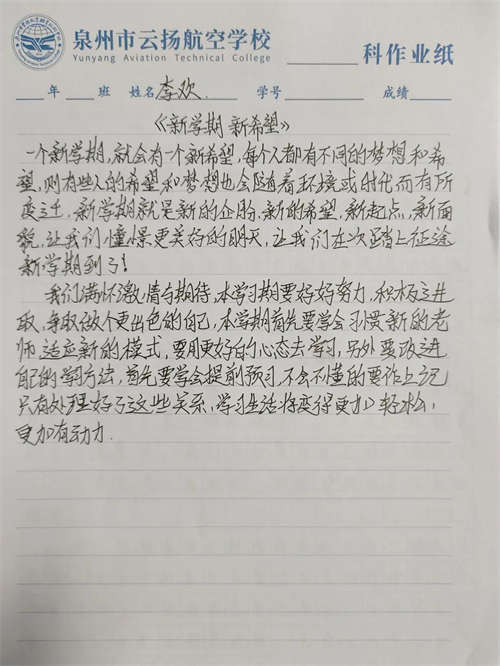 泉州市云扬航空学校
Yunyang Aviation Technical College
科作业纸
年 班 姓名 李欢 学号 成绩
《新学期 新希望》
一个新学期,就会有一个新希望,每个人都有不同的梦想和希
望,则有些人的希望和梦想也会随着环境或时代而有所
改变,新学期就是新的企盼,新的希望,新起点,新面
貌,让我们憧憬更美好的明天,让我们在次踏上征途
新学期到了!
我们满怀激情与期待,本学习期要好好努力,积极进
取,争取做个更出色的自己,本学期首先要学会习惯新的老
师适应新的模式,要用更好的心态去学习,另外要改进
自己的学习方法,首先要学会提前预习,不会不懂的要作上记
只有处理好了这些关系,学习生活将变得更加轻松,
更加有动力.